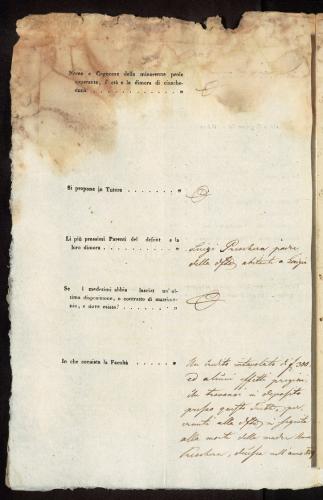 Nome e Cognome della minorenne prole
superstite, l'età e la dimora di ciasche-
duna . . . . . . . . . . . . . . »
Si propone in Tutore . . . . . . . . »
Li più prossimi Parenti del defont e la
loro dimora . . . . . . . . . . . . »
Luigi padre
della abitanti a
Se i medesimi abbia lasciat un'ul-
tima disposizione, o contratto di matrimo-
nio, e dove esista? . . . . . . . . »
In che consista la Facoltà . . . . . . »
Un credito intavolato di f. 300
ed alcuni effetti preziosi
che trovansi in deposito
presso questo per-
venuti alla in seguito
alla morte della madre
nell'anno